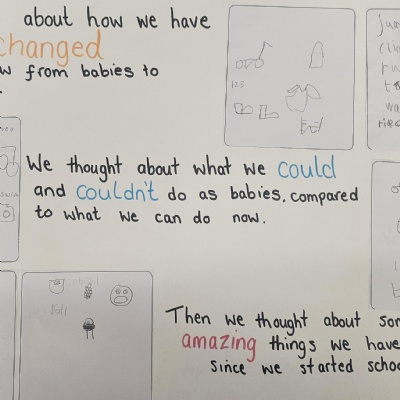 about how we have
changed
from babies to
We thought about what we could
and couldn't do as babies, compared
to what we can do now.
Then we thought about
amazing things we have
since we started